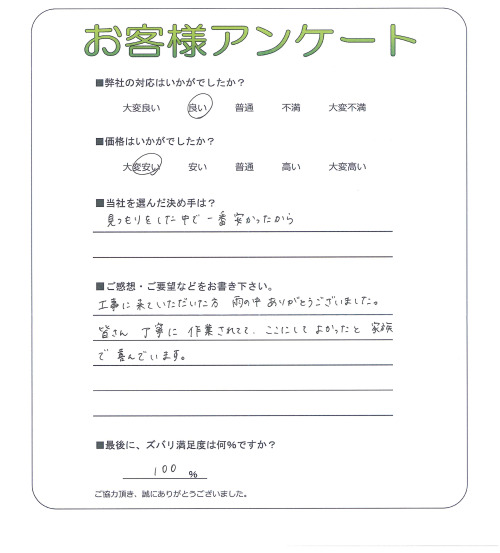 お客様アンケート
■弊社の対応はいかがでしたか？
大変良い 良い 普通 不満 大変不満
■価格はいかがでしたか？
大変安い 安い 普通 高い 大変高い
■当社を選んだ決め手は？
見つもりをした中で一番安かったから
■ご感想・ご要望などをお書き下さい。
工事に来ていただいた方 雨の中ありがとうございました。
皆さん 丁寧に 作業されてて、ここにしてよかったと 家族
で喜んでいます。
■最後に、ズバリ満足度は何%ですか？
100 %
ご協力頂き、誠にありがとうございました。